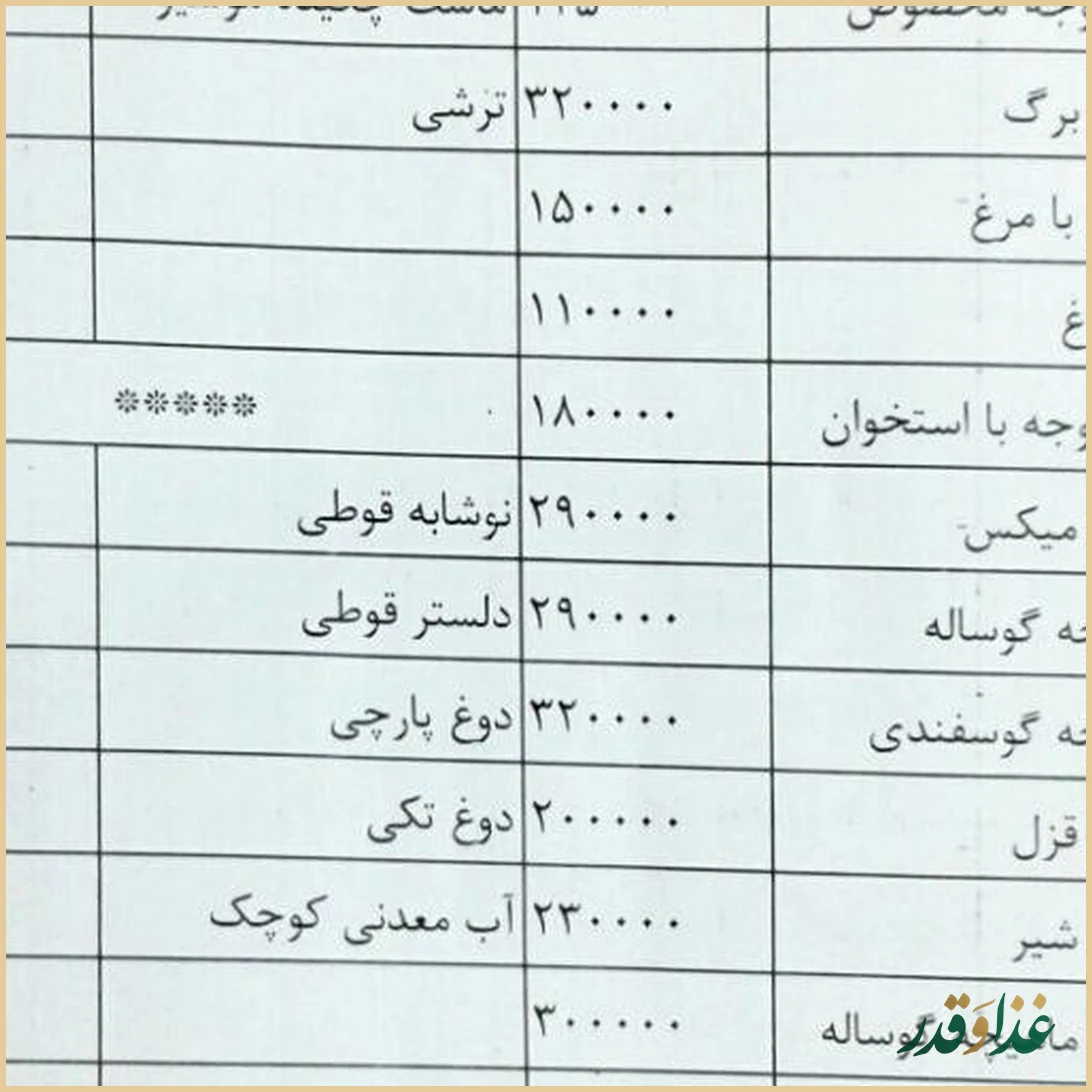 برگ ۳۲۰۰۰۰۰ ترشی
با مرغ ۱۵۰۰۰۰۰
۱۱۰۰۰۰۰
با استخوان ۱۸۰۰۰۰۰ *****
میکس ۲۹۰۰۰۰۰ نوشابه قوطی
گوساله ۲۹۰۰۰۰۰ دلستر قوطی
گوسفندی ۳۲۰۰۰۰۰ دوغ پارچی
قزل ۲۰۰۰۰۰۰ دوغ تکی
شیر ۲۳۰۰۰۰۰ آب معدنی کوچک
گوساله ۳۰۰۰۰۰۰
غذا و قدر